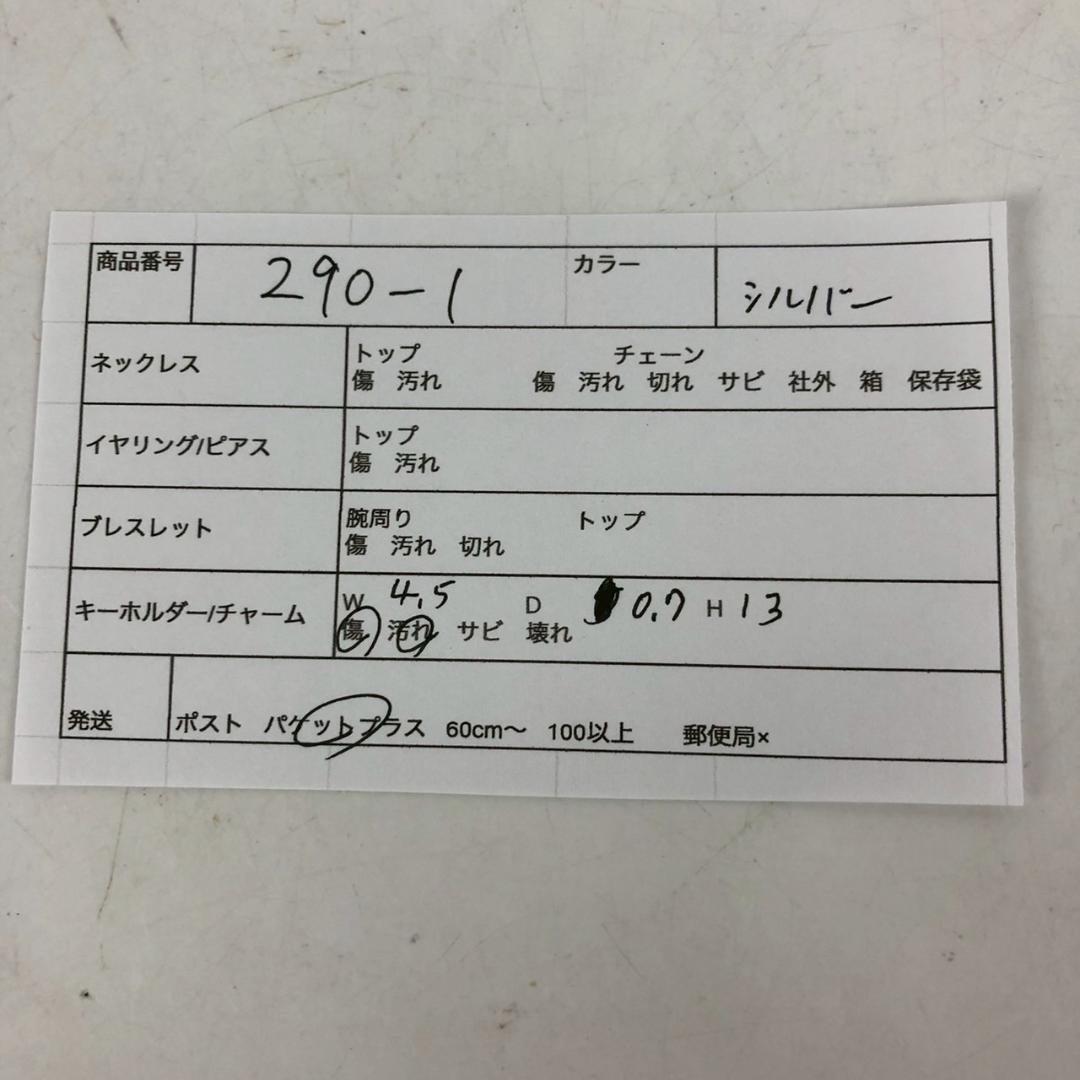 商品番号 290-1 カラー シルバー
ネックレス トップ チェーン
傷 汚れ 傷 汚れ 切れ サビ 社外 箱 保存袋
イヤリング/ピアス トップ
傷 汚れ
ブレスレット 腕周り トップ
傷 汚れ 切れ
キーホルダー/チャーム W 4.5 D 0.7 H 13
傷 汚れ サビ 壊れ
発送 ポスト パケットプラス 60cm〜 100以上 郵便局×